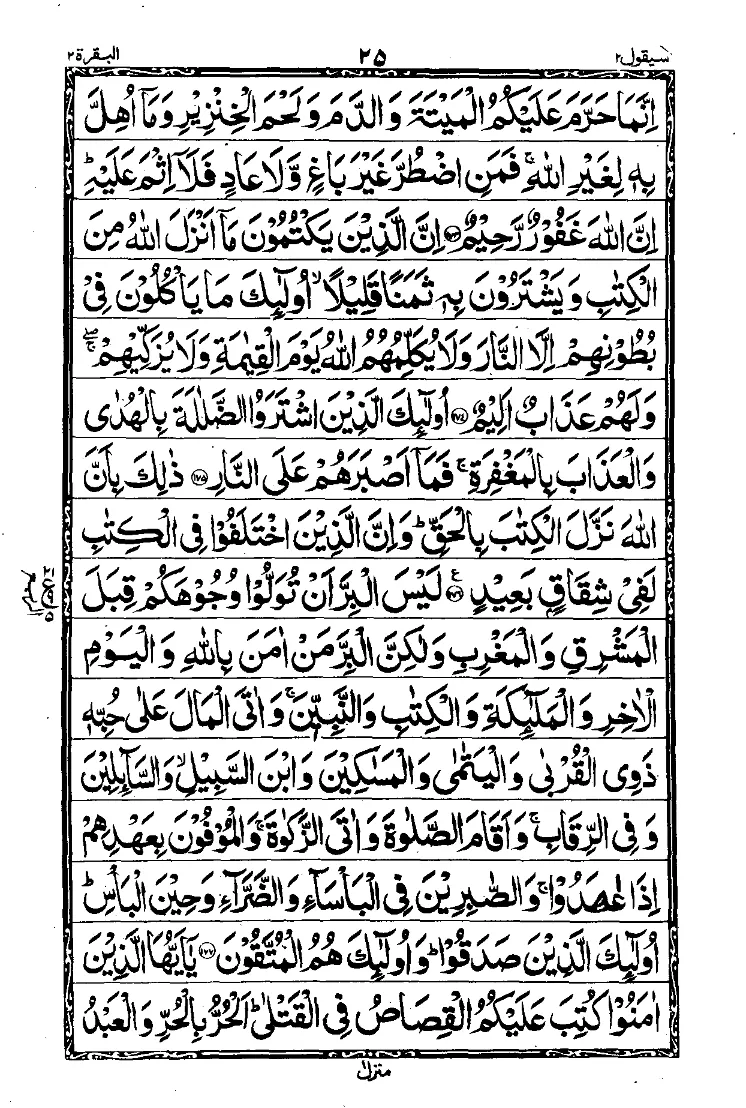 سیقول ۲
۲۵
البقرة ۲
اِنَّمَا حَرَّمَ عَلَيْكُمُ الْمَيْتَةَ وَالدَّمَ وَلَحْمَ الْخِنْزِيْرِ وَمَآ اُهِلَّ
بِهٖ لِغَيْرِ اللّٰهِ ۚ فَمَنِ اضْطُرَّ غَيْرَ بَاغٍ وَّلَا عَادٍ فَلَآ اِثْمَ عَلَيْهِ ؕ
اِنَّ اللّٰهَ غَفُوْرٌ رَّحِيْمٌ ﴿۱۷۳﴾ اِنَّ الَّذِيْنَ يَكْتُمُوْنَ مَآ اَنْزَلَ اللّٰهُ مِنَ
الْكِتٰبِ وَيَشْتَرُوْنَ بِهٖ ثَمَنًا قَلِيْلًا ۙ اُولٰٓئِكَ مَا يَاْكُلُوْنَ فِيْ
بُطُوْنِهِمْ اِلَّا النَّارَ وَلَا يُكَلِّمُهُمُ اللّٰهُ يَوْمَ الْقِيٰمَةِ وَلَا يُزَكِّيْهِمْ ۖۚ
وَلَهُمْ عَذَابٌ اَلِيْمٌ ﴿۱۷۴﴾ اُولٰٓئِكَ الَّذِيْنَ اشْتَرَوُا الضَّلٰلَةَ بِالْهُدٰى
وَالْعَذَابَ بِالْمَغْفِرَةِ ۚ فَمَآ اَصْبَرَهُمْ عَلَى النَّارِ ﴿۱۷۵﴾ ذٰلِكَ بِاَنَّ
اللّٰهَ نَزَّلَ الْكِتٰبَ بِالْحَقِّ ؕ وَاِنَّ الَّذِيْنَ اخْتَلَفُوْا فِي الْكِتٰبِ
لَفِيْ شِقَاقٍۭ بَعِيْدٍ ﴿۱۷۶﴾ ع لَيْسَ الْبِرَّ اَنْ تُوَلُّوْا وُجُوْهَكُمْ قِبَلَ
الْمَشْرِقِ وَالْمَغْرِبِ وَلٰكِنَّ الْبِرَّ مَنْ اٰمَنَ بِاللّٰهِ وَالْيَوْمِ
الْاٰخِرِ وَالْمَلٰٓئِكَةِ وَالْكِتٰبِ وَالنَّبِيّٖنَ ۚ وَاٰتَى الْمَالَ عَلٰى حُبِّهٖ
ذَوِي الْقُرْبٰى وَالْيَتٰمٰى وَالْمَسٰكِيْنَ وَابْنَ السَّبِيْلِ ۙ وَالسَّآئِلِيْنَ
وَفِي الرِّقَابِ ۚ وَاَقَامَ الصَّلٰوةَ وَاٰتَى الزَّكٰوةَ ۚ وَالْمُوْفُوْنَ بِعَهْدِهِمْ
اِذَا عٰهَدُوْا ۚ وَالصّٰبِرِيْنَ فِي الْبَاْسَآءِ وَالضَّرَّآءِ وَحِيْنَ الْبَاْسِ ؕ
اُولٰٓئِكَ الَّذِيْنَ صَدَقُوْا ؕ وَاُولٰٓئِكَ هُمُ الْمُتَّقُوْنَ ﴿۱۷۷﴾ يٰٓاَيُّهَا الَّذِيْنَ
اٰمَنُوْا كُتِبَ عَلَيْكُمُ الْقِصَاصُ فِي الْقَتْلٰى ؕ اَلْحُرُّ بِالْحُرِّ وَالْعَبْدُ
منزل ۱